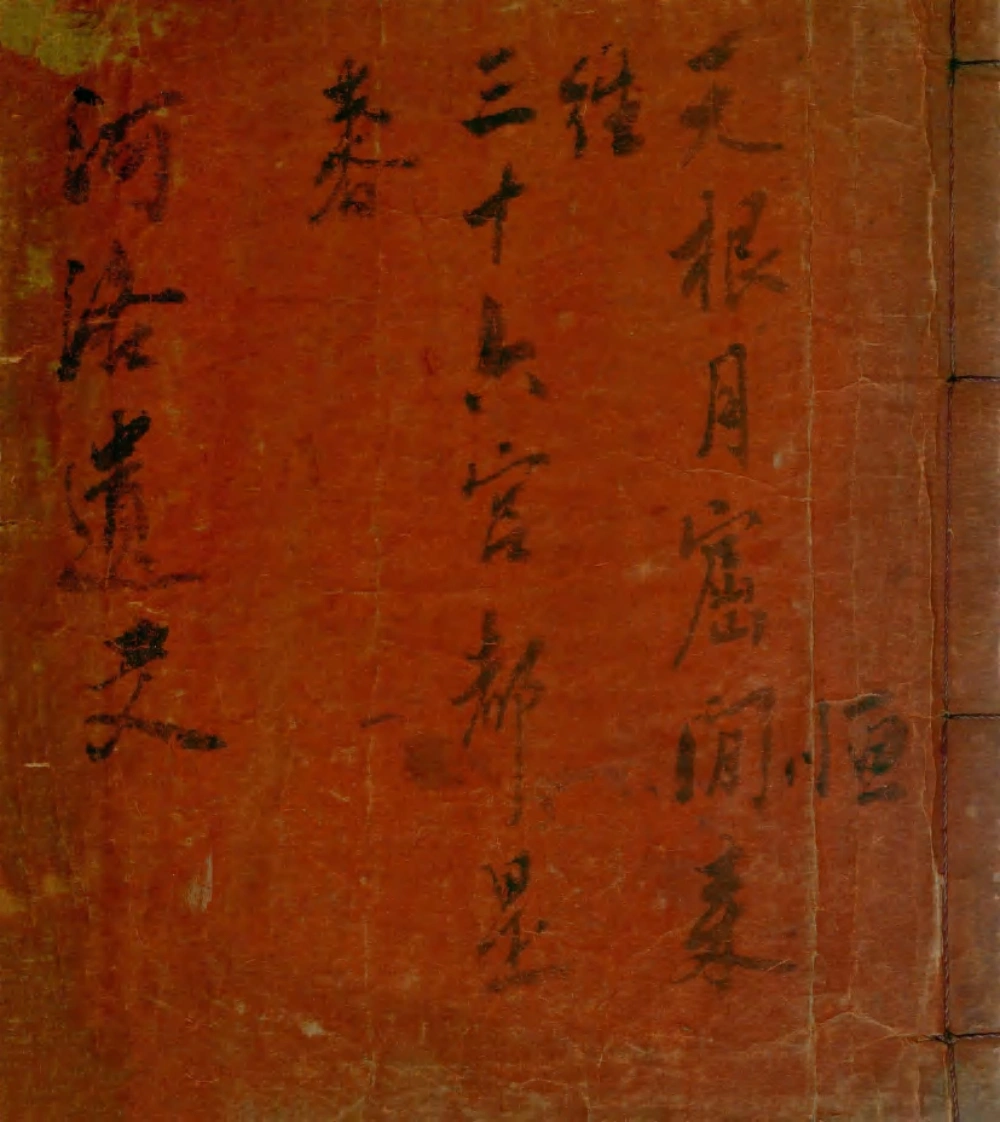 恒
天根月窟閒來
往
三十六宮都是
春
河洛遺文